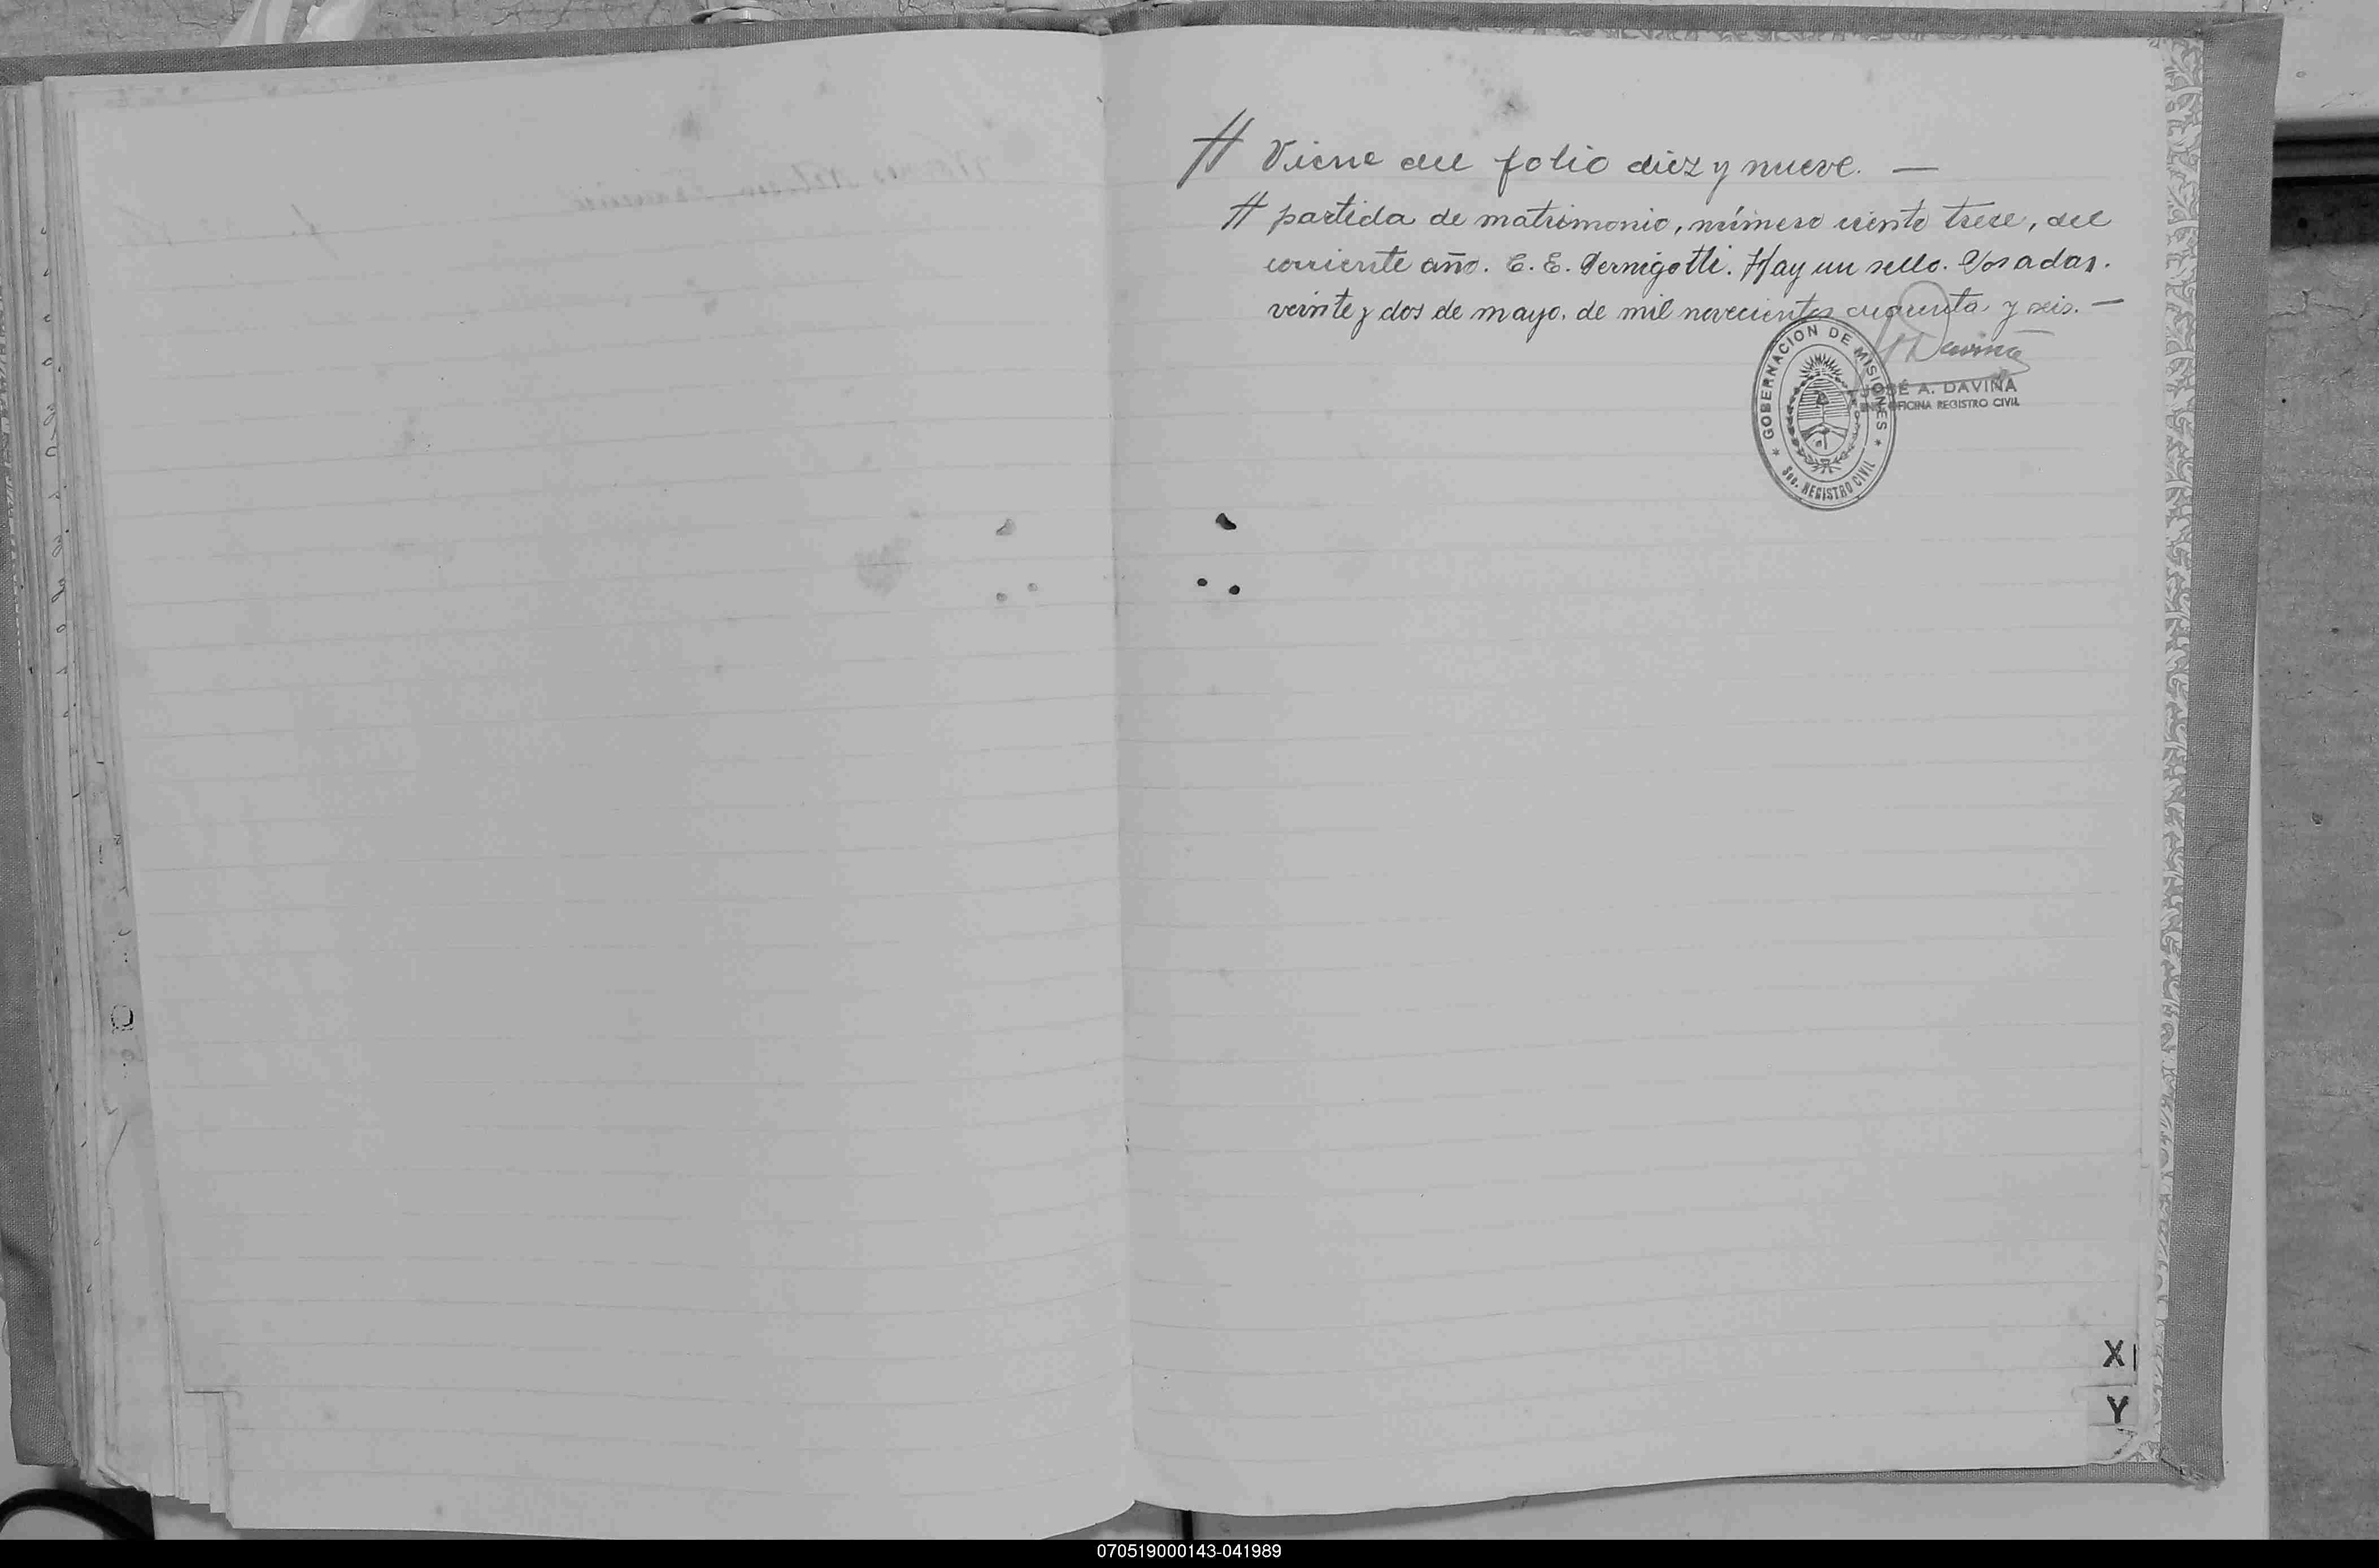 # Viene del folio diez y nueve. —
# partida de matrimonio, número ciento trece, del
corriente año. C. E. Pernigotti. Hay un sello. Posadas.
veinte y dos de mayo. de mil novecientos cuarenta y seis. —
Daviña
JOSÉ A. DAVIÑA
OFICINA REGISTRO CIVIL
* GOBERNACION DE MISIONES *
Sec. REGISTRO CIVIL
X
Y
070519000143-041989